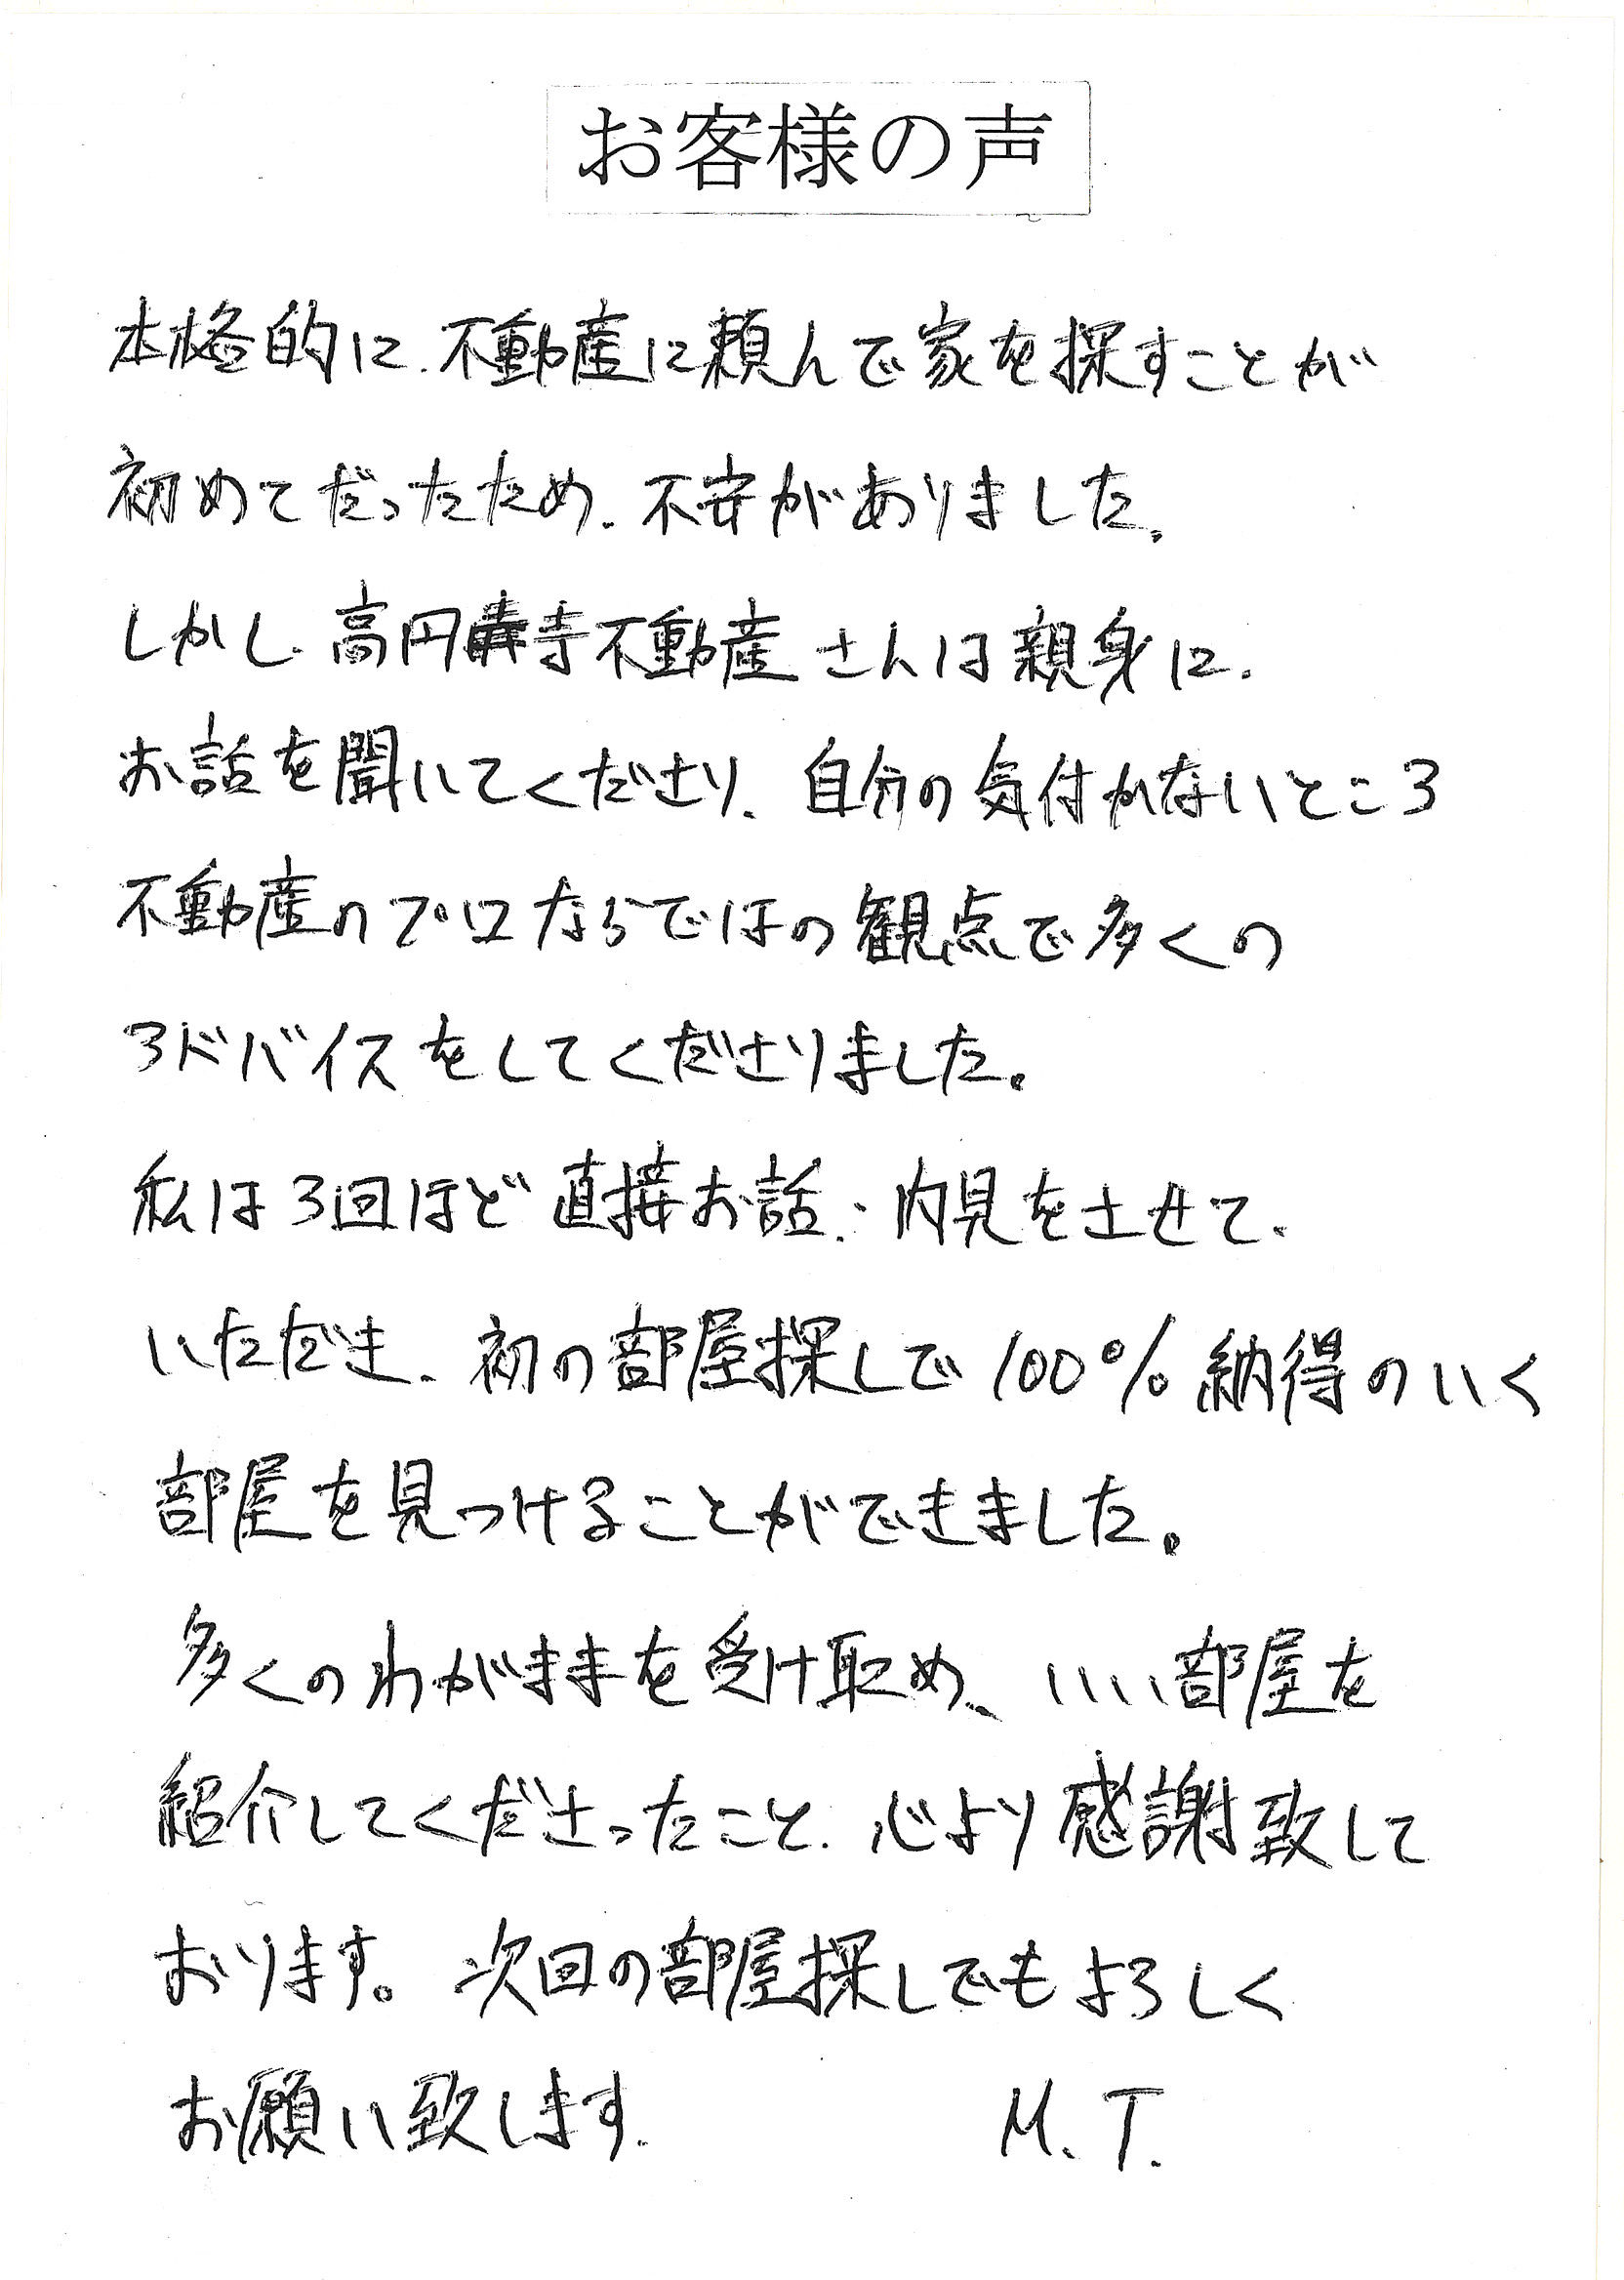 お客様の声
本格的に、不動産に頼んで家を探すことが
初めてだったため、不安がありました。
しかし、高円寺不動産さんは親身に、
お話を聞いてくださり、自分の気付かないところ
不動産のプロならではの観点で多くの
アドバイスをしてくださりました。
私は3回ほど直接お話、内見をさせて、
いただき、初の部屋探しで100%納得のいく
部屋を見つけることができました。
多くのわがままを受け取め、いい部屋を
紹介してくださったこと、心より感謝致して
おります。次回の部屋探しでもよろしく
お願い致します。
M.T.